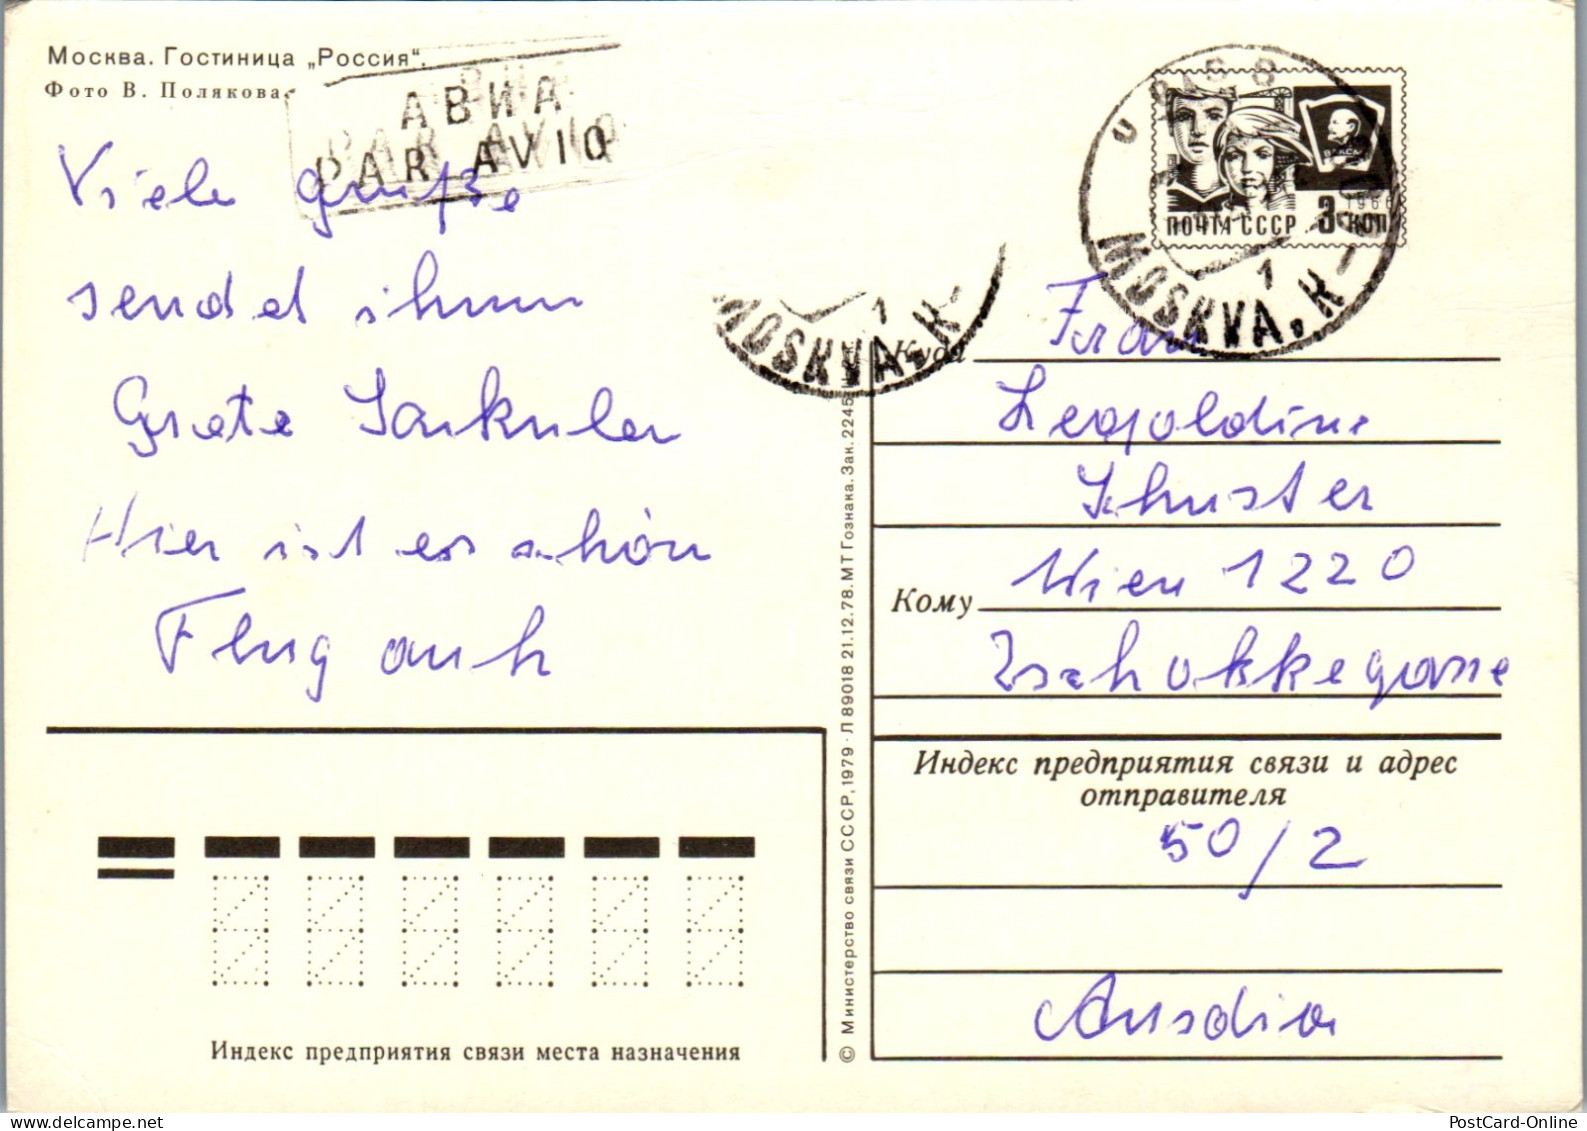 Москва. Гостиница „Россия“.
Фото В. Полякова
АВИА
PAR AVION
Viele Grüße
sendet ihnen
Grete
Hier ist es schön
Flug auch
ПОЧТА СССР 3 КОП
1966
MOSKVA,
1
MOSKVA,
1
Куда
Frau
Leopoldine
Schuster
Кому
Wien 1220
Zschokkegasse
Индекс предприятия связи и адрес
отправителя
50/2
Ausdia
© Министерство связи СССР, 1979 · Л 89018 21.12.78. МТ Гознака. Зак. 2245
Индекс предприятия связи места назначения
PostCard-Online